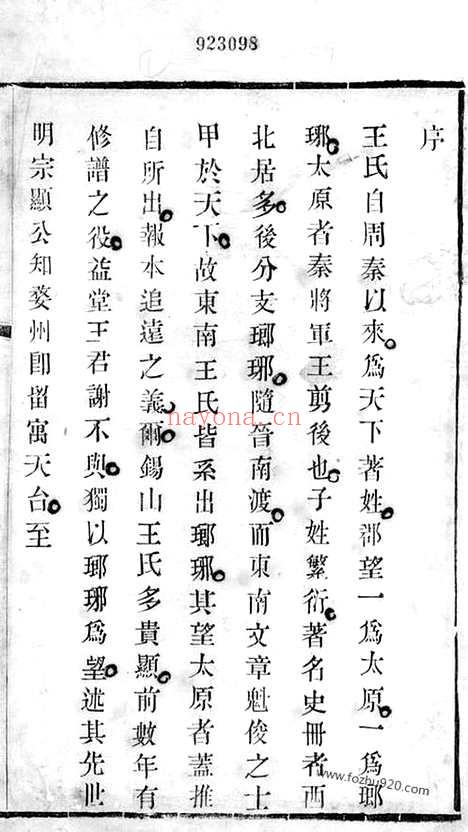 923098
序
王氏自周秦以來爲天下著姓郡望一爲太原一爲瑯
琊太原者秦將軍王剪後也子姓繁衍著名史冊者西
北居多後分支瑯琊隨晉南渡而東南文章魁俊之士
甲於天下故東南王氏皆系出瑯琊其望太原者蓋推
自所出報本追遠之義爾錫山王氏多貴顯前數年有
修譜之役益堂王君謝不與獨以瑯琊爲望述其先世
明宗顯公知婺州卽留寓天台至
nayona.cn
www.fozhu920.com